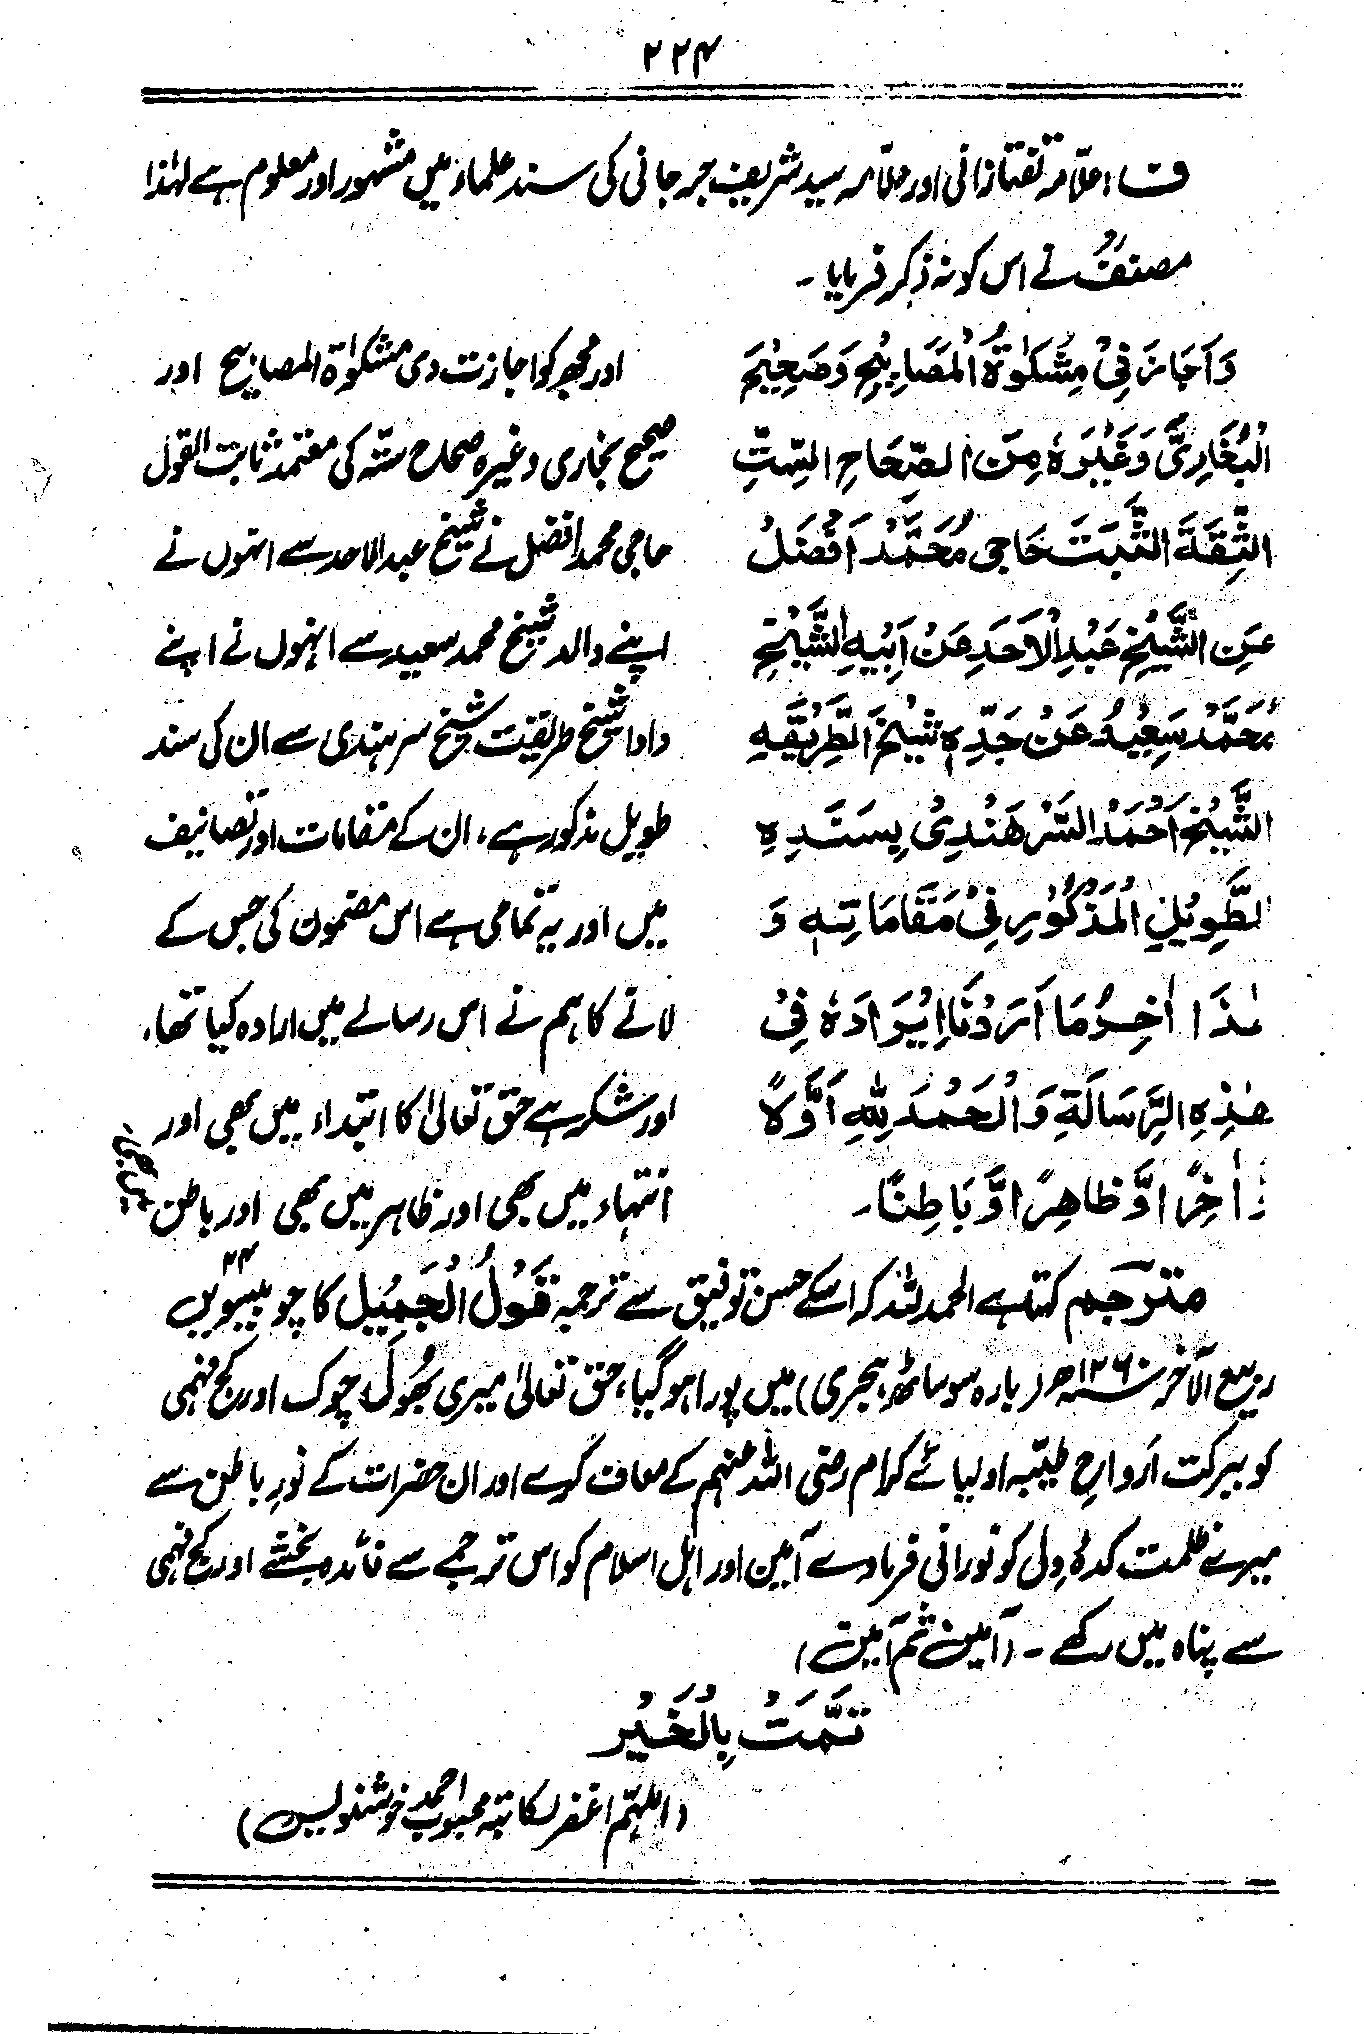 ۲۲۴
ف: علّامہ تفتازانی اور علّامہ سید شریف جرجانی کی سند علماء میں مشہور اور معلوم ہے لہٰذا
مصنفؒ نے اس کو نہ ذکر فرمایا ۔
وَاَجَازَنِیْ فِیْ مِشْکٰوۃِ الْمَصَابِیْحِ وَصَحِیْحِ
الْبُخَارِیِّ وَغَیْرِہٖ مِنَ الصِّحَاحِ السِّتِّ
الثِّقَۃُ الثَّبَتُ حَاجِی مُحَمَّدْ اَفْضَلُ
عَنِ الشَّیْخِ عَبْدِ الْاَحَدِ عَنْ اَبِیْہِ الشَّیْخِ
مُحَمَّدْ سَعِیْدٍ عَنْ جَدِّہٖ شَیْخِ الطَّرِیْقَۃِ
الشَّیْخِ اَحْمَدَ السَّرْھَنْدِیْ بِسَنَدِہِ
الطَّوِیْلِ الْمَذْکُوْرِ فِیْ مَقَامَاتِہٖ وَ
ھٰذَا اٰخِرُ مَا اَرَدْنَا اِیْرَادَہٗ فِیْ
ھٰذِہِ الرِّسَالَۃِ وَالْحَمْدُ لِلّٰہِ اَوَّلًا
وَّ اٰخِرًا وَّ ظَاھِرًا وَّ بَاطِنًا ۔
اور مجھ کو اجازت دی مشکوٰۃ المصابیح اور
صحیح بخاری وغیرہ صحاح ستّہ کی معتمد ثابت القول
حاجی محمد افضل نے شیخ عبدالاحد سے انہوں نے
اپنے والد شیخ محمد سعید سے انہوں نے اپنے
دادا شیخ طریقت شیخ سرہندی سے ان کی سند
طویل مذکور ہے، ان کے مقامات اور تصانیف
میں اور یہ تمامی ہے اس مضمون کی جس کے
لانے کا ہم نے اس رسالے میں ارادہ کیا تھا،
اور شکر ہے حق تعالیٰ کا ابتداء میں بھی اور
انتہاء میں بھی اور ظاہر میں بھی اور باطن
میں بھی
مترجم کہتا ہے الحمدللہ کہ اسکے حسن توفیق سے ترجمہ قَوْلُ الْجَمِیْل کا چوبیسویں ۲۴
ربیع الآخر سنہ ۱۲۶۰ھ (بارہ سو ساٹھ ہجری) میں پورا ہوگیا، حق تعالیٰ میری بھُول چوک اور کج فہمی
کو ببرکت اَرواحِ طیّبہ اولیائے کرام رضی اللہ عنہم کے معاف کرے اور ان حضرات کے نورِ باطن سے
میرے ظلمت کدۂ دِل کو نورانی فرمادے آمین اور اہل اسلام کو اس ترجمے سے فائدہ بخشے اور کج فہمی
سے پناہ میں رکھے ۔ (آمین ثم آمین)
تَمَّتْ بِالْخَیْرِ
(اللہم اغفر لکاتبہ محبوب احمد خوشنویس)